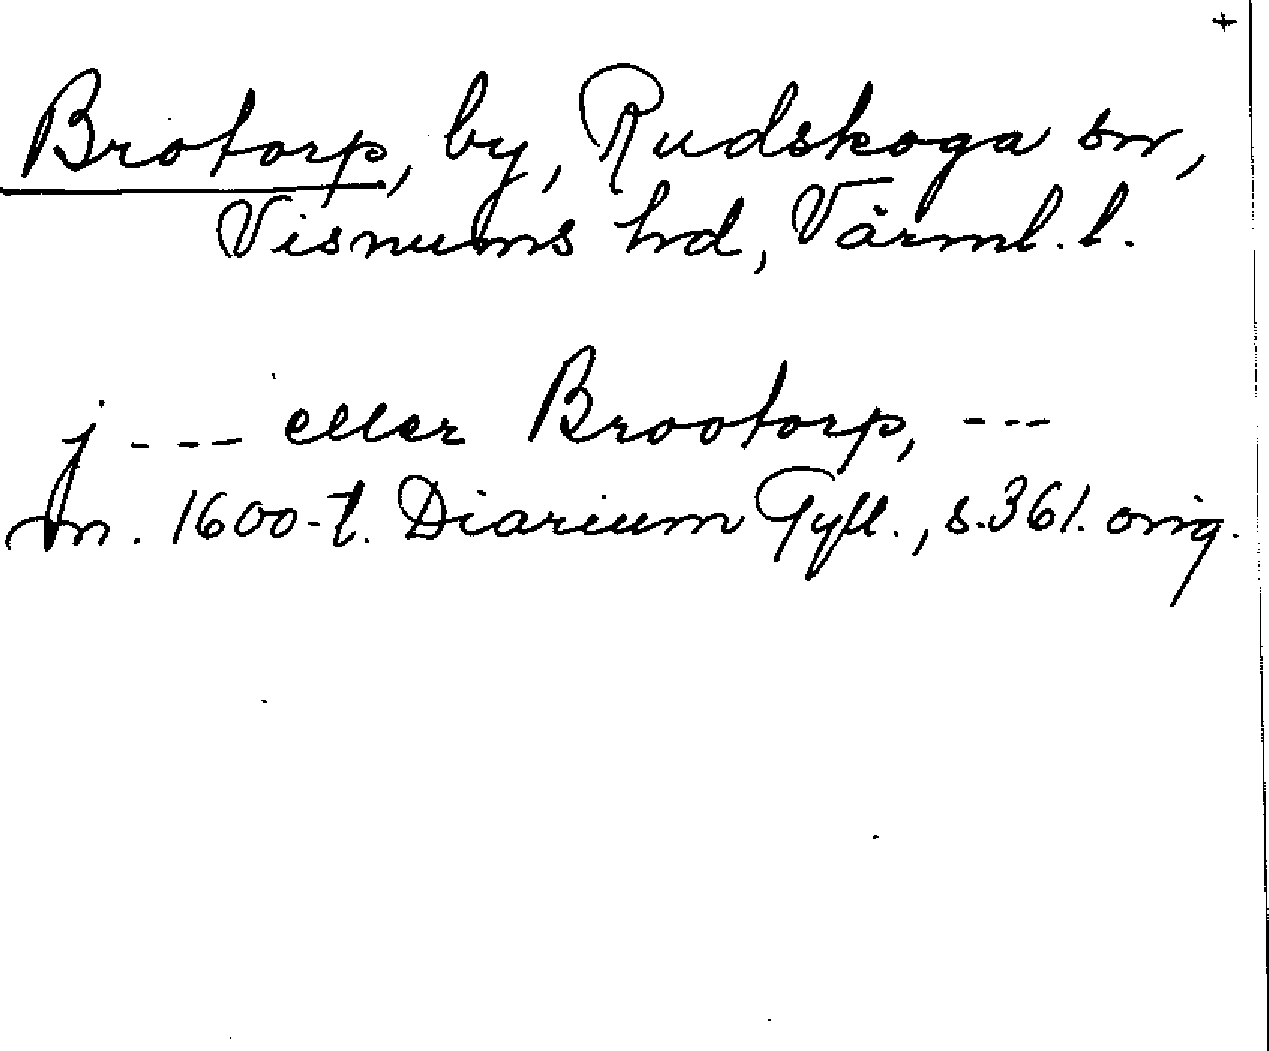 +
Brotorp, by, Rudskoga sn,
Visnums hd, Värml. l.
j --- eller Brootorp, ---
m. 1600-t. Diarium Gyll., s. 361. orig.